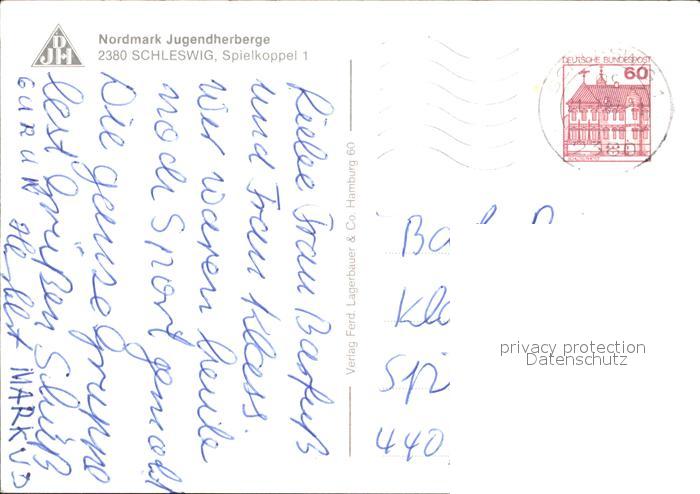 DJH
Nordmark Jugendherberge
2380 SCHLESWIG, Spielkoppel 1
Liebe Frau Barfuß
und Frau Klass.
Wir waren heute
noch Sport gemacht
Die ganze Gruppe
lest grüßen Schüß
GURUN Herbst MARKUS
Verlag Ferd. Lagerbauer & Co. Hamburg 60
DEUTSCHE BUNDESPOST
60
Ba
Kla
Spi
440
privacy protection
Datenschutz